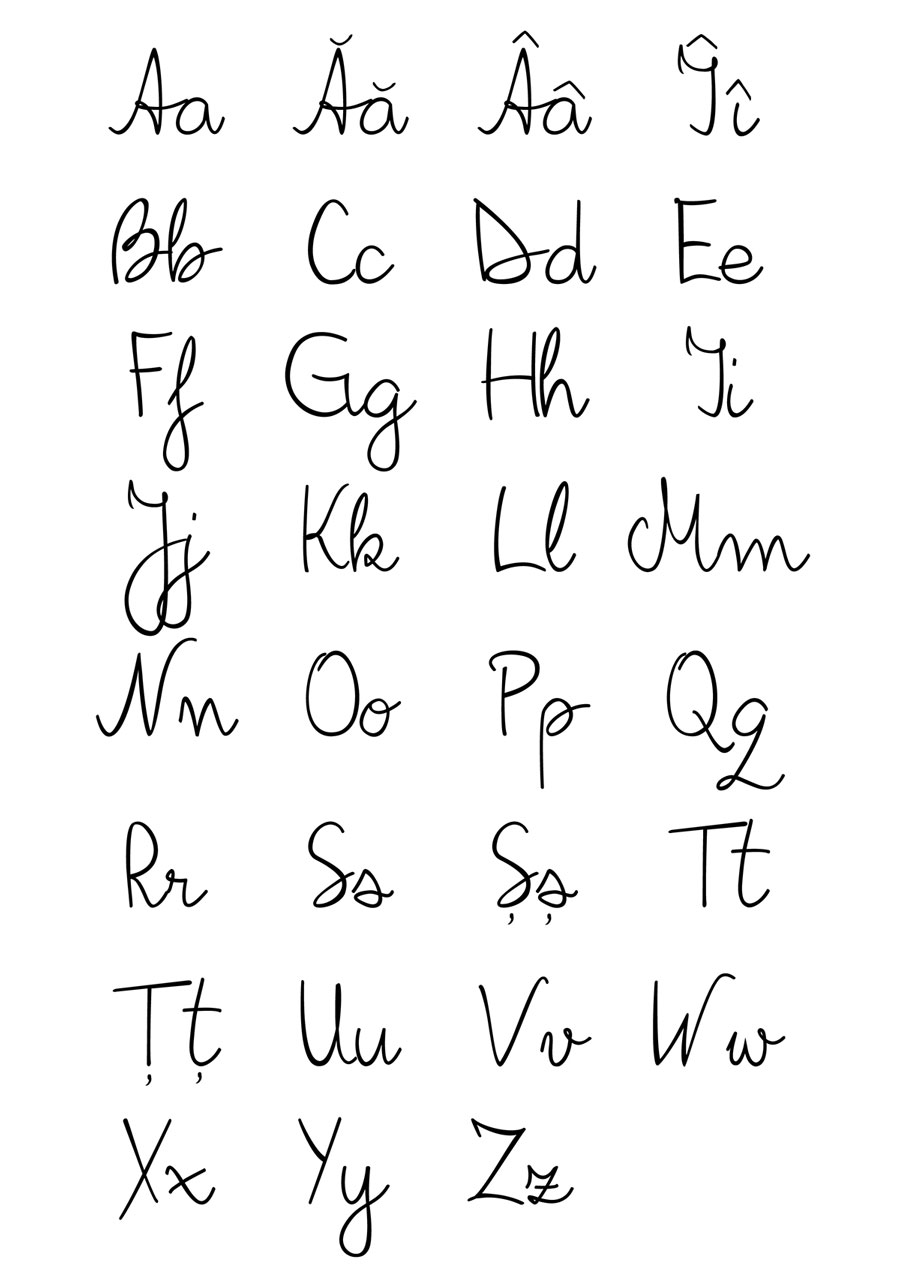 Aa Ăă Ââ Îî
Bb Cc Dd Ee
Ff Gg Hh Ii
Jj Kk Ll Mm
Nn Oo Pp Qq
Rr Ss Șș Tt
Țț Uu Vv Ww
Xx Yy Zz